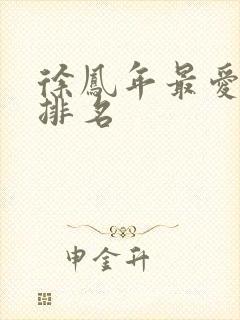 徐鳳年最愛
排名
申金升